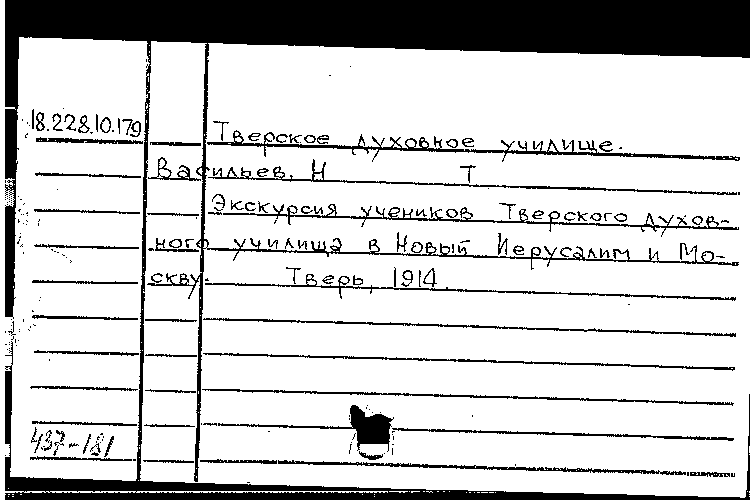 18.228.10.179 Тверское духовное училище.
Васильев, Н Т
Экскурсия учеников Тверского духов-
ного училища в Новый Иерусалим и Мо-
скву. Тверь, 1914.
437-181